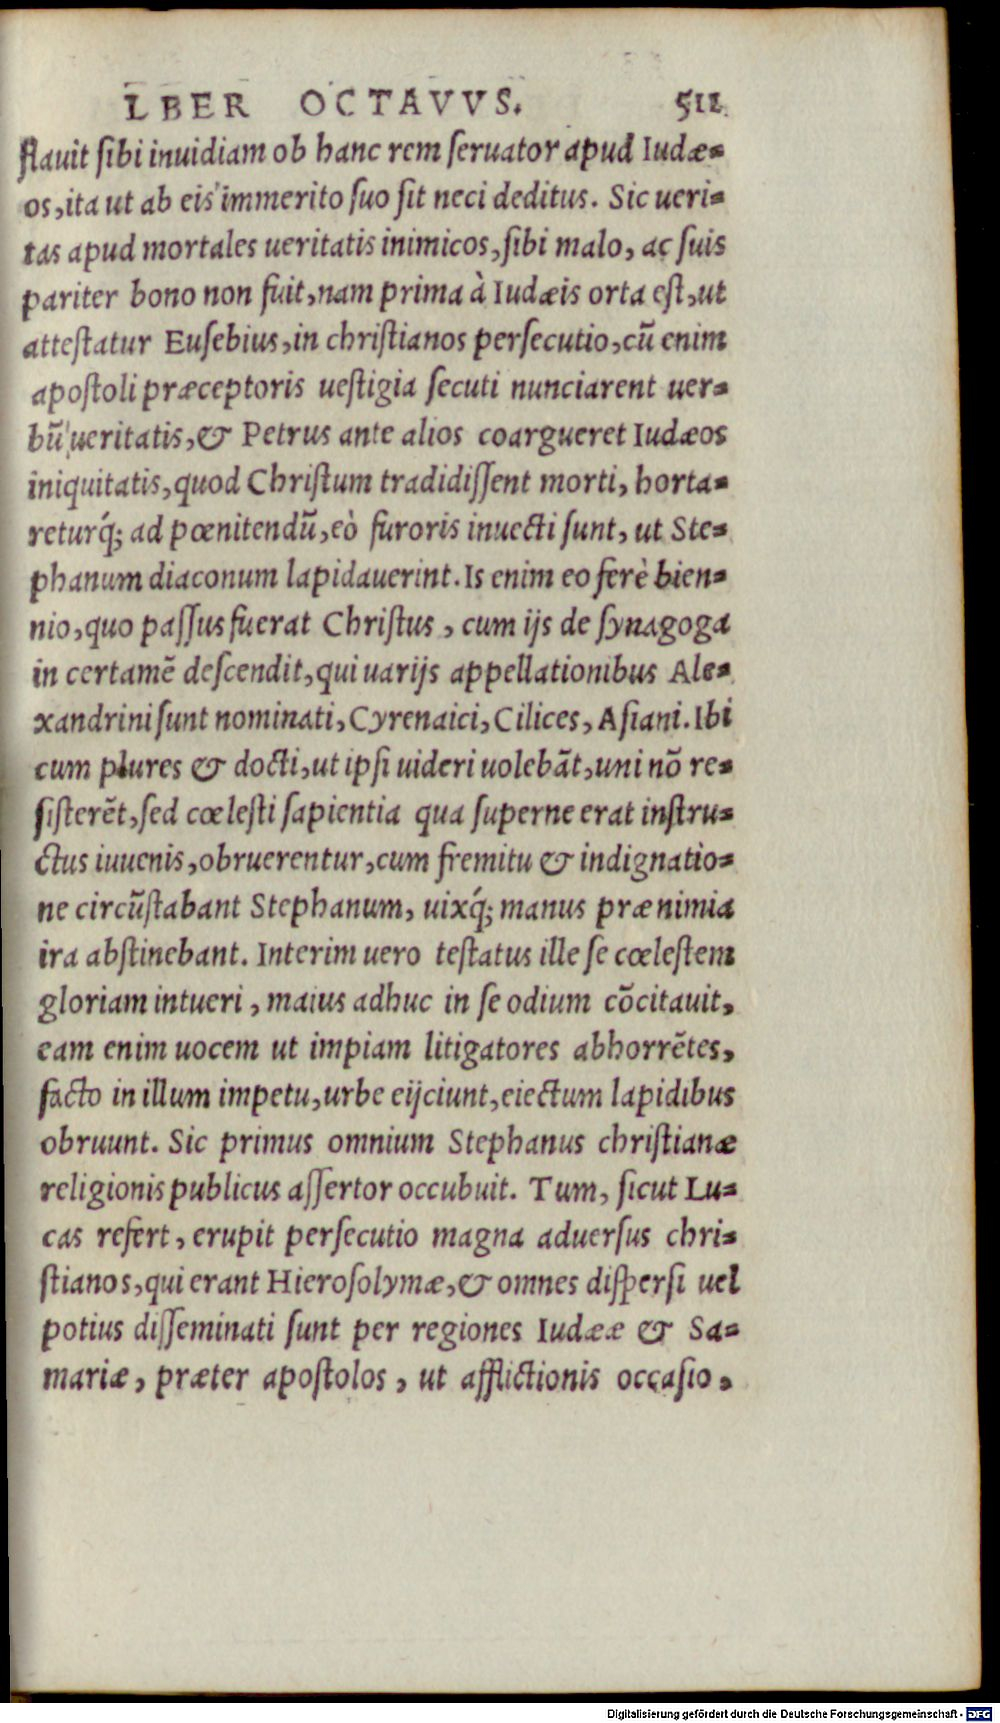 LBER OCTAVVS. 511
flauit ſibi inuidiam ob hanc rem ſeruator apud Iudæ-
os, ita ut ab eis immerito ſuo ſit neci deditus. Sic ueri-
tas apud mortales ueritatis inimicos, ſibi malo, ac ſuis
pariter bono non fuit, nam prima à Iudæis orta eſt, ut
atteſtatur Euſebius, in chriſtianos perſecutio, cũ enim
apoſtoli præceptoris ueſtigia ſecuti nunciarent uer-
bũ ueritatis, & Petrus ante alios coargueret Iudæos
iniquitatis, quod Chriſtum tradidiſſent morti, horta-
returq́; ad pœnitendũ, eò furoris inuecti ſunt, ut Ste-
phanum diaconum lapidauerint. Is enim eo ferè bien-
nio, quo paſſus fuerat Chriſtus, cum ijs de ſynagoga
in certamẽ deſcendit, qui uarijs appellationibus Ale-
xandrini ſunt nominati, Cyrenaici, Cilices, Aſiani. Ibi
cum plures & docti, ut ipſi uideri uolebãt, uni nõ re-
ſiſterẽt, ſed cœleſti ſapientia qua ſuperne erat inſtru-
ctus iuuenis, obruerentur, cum fremitu & indignatio-
ne circũſtabant Stephanum, uixq́; manus præ nimia
ira abſtinebant. Interim uero teſtatus ille ſe cœleſtem
gloriam intueri, maius adhuc in ſe odium cõcitauit,
eam enim uocem ut impiam litigatores abhorrẽtes,
facto in illum impetu, urbe eijciunt, eiectum lapidibus
obruunt. Sic primus omnium Stephanus chriſtianæ
religionis publicus aſſertor occubuit. Tum, ſicut Lu-
cas refert, erupit perſecutio magna aduerſus chri-
ſtianos, qui erant Hieroſolymæ, & omnes diſperſi uel
potius diſſeminati ſunt per regiones Iudææ & Sa-
mariæ, præter apoſtolos, ut afflictionis occaſio,
Digitalisierung gefördert durch die Deutsche Forschungsgemeinschaft - DFG